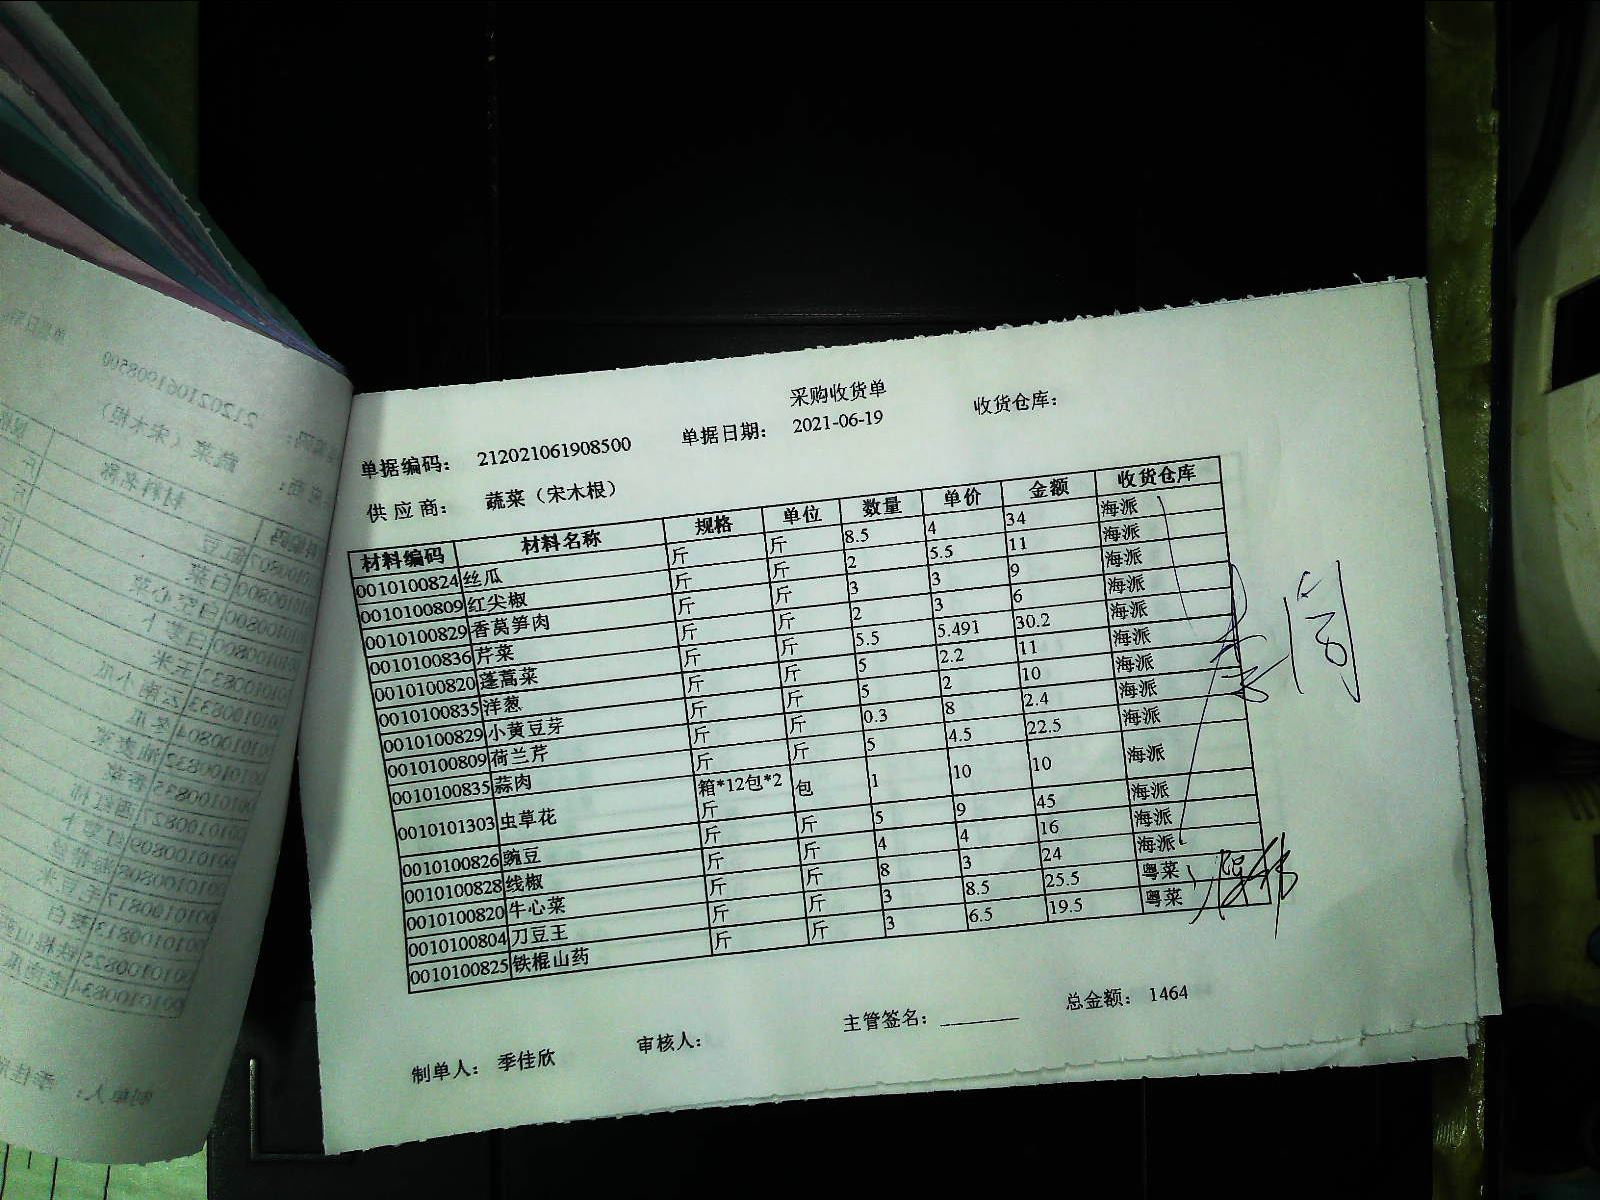 采购收货单
单据编码： 212021061908500 单据日期： 2021-06-19 收货仓库：
供 应 商： 蔬菜（宋木根）
材料编码 材料名称 规格 单位 数量 单价 金额 收货仓库
0010100824 丝瓜 斤 斤 8.5 4 34 海派
0010100809 红尖椒 斤 斤 2 5.5 11 海派
0010100829 香莴笋肉 斤 斤 3 3 9 海派
0010100836 芹菜 斤 斤 2 3 6 海派
0010100820 蓬蒿菜 斤 斤 5.5 5.491 30.2 海派
0010100835 洋葱 斤 斤 5 2.2 11 海派
0010100829 小黄豆芽 斤 斤 5 2 10 海派
0010100809 荷兰芹 斤 斤 0.3 8 2.4 海派
0010100835 蒜肉 斤 斤 5 4.5 22.5 海派
0010101303 虫草花 箱*12包*2斤 包 1 10 10 海派
0010100826 豌豆 斤 斤 5 9 45 海派
0010100828 线椒 斤 斤 4 4 16 海派
0010100820 牛心菜 斤 斤 8 3 24 海派
0010100804 刀豆王 斤 斤 3 8.5 25.5 粤菜
0010100825 铁棍山药 斤 斤 3 6.5 19.5 粤菜
制单人： 季佳欣 审核人： 主管签名： 总金额： 1464